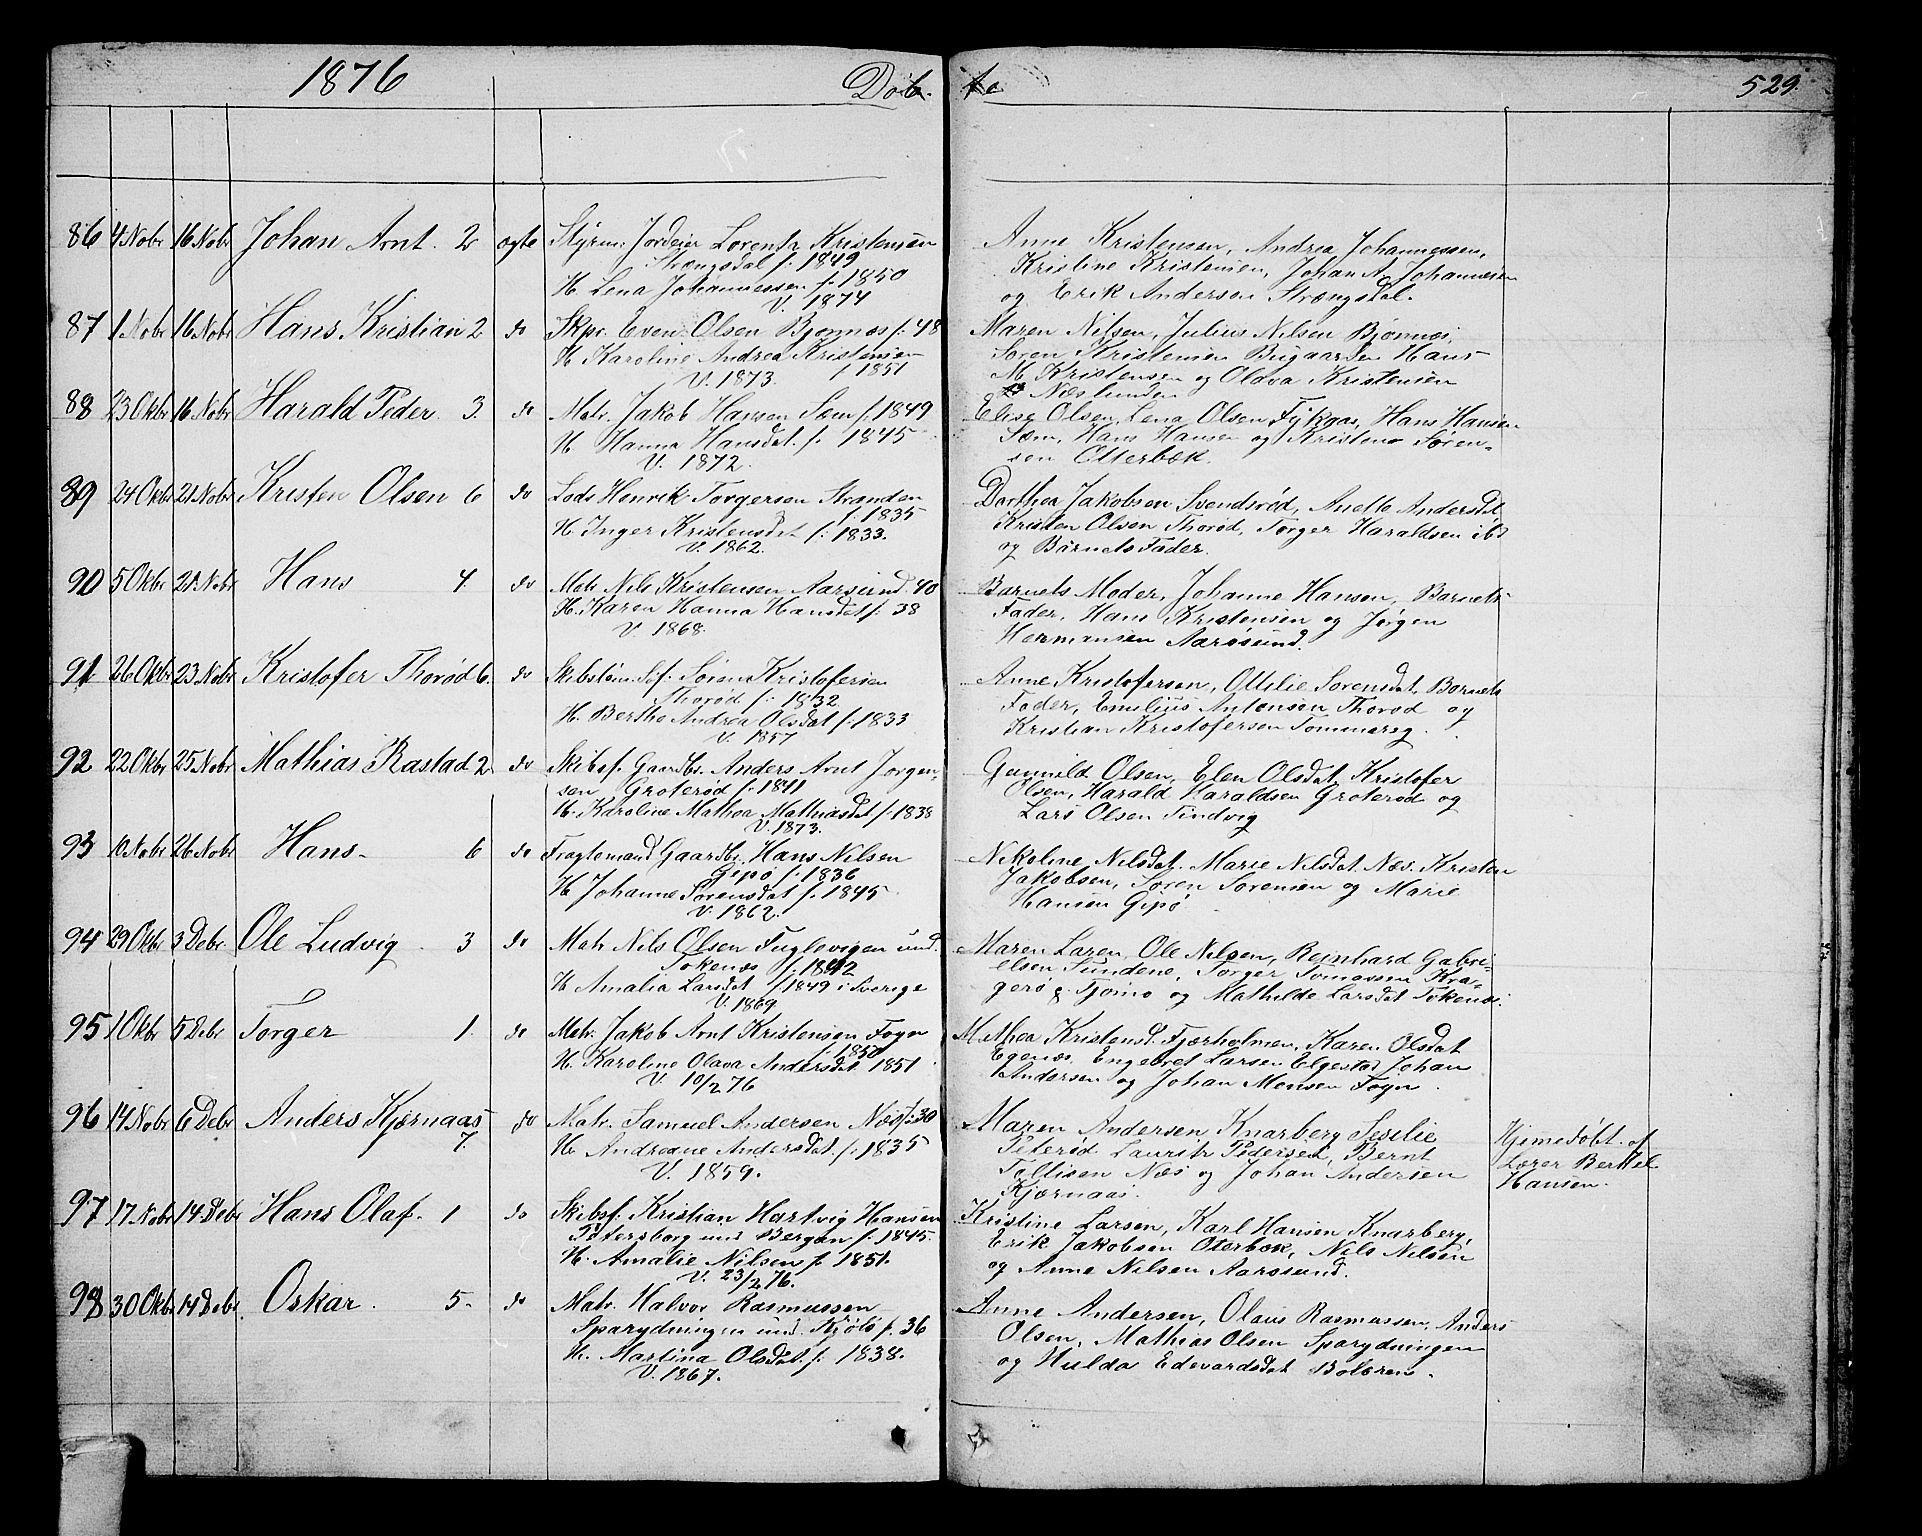 1876 Døb- te 529.
86 4 Nobr 16 Nobr Johan Arnt. 2 ægte Styrm: Jordeier Lorentz Kristensen
Strængsdal f. 1849
H. Lena Johannessen f. 1850
V. 1874
Anne Kristensen, Andrea Johannessen,
Kristine Kristensen, Johan A. Johannesen
og Erik Andersen Strængsdal.
87 1 Nobr 16 Nobr Hans Kristian 2 do Skpr. Even Olsen Bjønnæs f. 48
H. Karoline Andrea Kristensen
V. 1873. f 1851
Maren Nilsen, Julius Nilsen Bjønnæs,
Søren Kristensen Bugaarden Hans
M. Kristensen og Olava Kristensen
Næslunden
88 23 Okbr 16 Nobr Harald Peder 3. do Matr. Jakob Hansen Sæm f. 1849
H. Hanna Hansdat. f. 1845
V. 1872.
Elise Olsen, Lena Olsen Fykaas, Hans Hansen
Sæm, Hans Hansen og Kristine Søren-
sen Otterbæk.
89 24 Okbr 21 Nobr Kristen Olsen 6 do Lods Henrik Torgersen Stranden
f. 1835
H. Inger Kristensdat f. 1833.
V. 1862.
Dorthea Jakobsen Svendsrød, Anette Andersdt
Kristen Olsen Thorød, Torger Haraldsen ibd
og Barnets Fader.
90 5 Okbr 21 Nobr Hans 4. do Matr Nils Kristensen Aarøsund. 40
H. Karen Hanna Hansdat f. 38
V. 1868.
Barnets Moder, Johanne Hansen, Barnets
Fader, Hans Kristensen og Jørgen
Hermansen Aarøsund.
91 26 Okbr 23 Nobr Kristofer Thorød 6. do Skibstøm. Sef. Søren Kristofersen
Thorød f. 1832
H. Berthe Andrea Olsdat f. 1833
V. 1857
Anne Kristofersen, Ottilie Sørensdat, Barnets
Fader, Emilius Antonsen Thorød og
Kristian Kristofersen Tommereg.
92 22 Okbr 25 Nobr Mathias Rastad 2 do Skibsf. Gaardbr. Anders Arnt Jørgen-
sen, Groterød f. 1841
H. Karoline Mathea Mathiasdat f. 1838
V. 1873.
Gunnild Olsen, Elen Olsdat, Kristofer
Olsen, Harald Haraldsen Groterød og
Lars Olsen Tindvig
93 10 Nobr 26 Nobr Hans 6 do Fragtemand Gaardbr. Hans Nilsen
Gipø f. 1836
H. Johanne Sørensdat f. 1845
V. 1862.
Nikoline Nilsdat. Marie Nilsdat. Næs. Kristen
Jakobsen, Søren Sørensen og Marie
Hansen Gipø
94 29 Okbr 3 Debr. Ole Ludvig 3 do Matr Nils Olsen Fuglevigen und.
Tokenæs f. 1842
H. Amalia Larsdat f. 1849 i Sverige
V. 1869
Maren Laren, Ole Nilsen, Reinhard Gabri-
elsen Sundene, Torger Tomassen Kra-
gerø p. Tjømø og Mathilde Larsdat Tokenæs.
95 1 Okbr 5 Debr Torger 1. do Matr. Jakob Arnt Kristensen Føyn
f. 1850
H. Karoline Olava Andersdat 1851
V. 10/2 76
Mathea Kristensd. Fjærholmen, Karen Olsdat
Egenæs. Engebret Larsen Elgestad Johan
Andersen og Johan Monsen Føyn.
96 14 Nobr 6 Debr Anders Kjærnaas
7.
do Matr. Samuel Andersen Næs f. 30
H. Andreane Andersdat. f. 1835
V. 1859.
Maren Andersen Knarberg Sesilie
Peterød Lauritz Pedersen, Bernt
Tollisen Næs og Johan Andersen
Kjærnaas.
Hjemedøbt af
Lærer Berthel
Hansen.
97 17 Nobr 14 Debr Hans Olaf. 1 do Skibsf. Kristian Hartvig Hansen
Petersborg und Bergan f. 1845.
H. Amalie Nilsen f. 1851.
V. 23/2 76.
Kristine Larsen, Karl Hansen Knarberg,
Erik Jakobsen Oterbæk, Nils Nilsen
og Anne Nilsen Aarøsund.
98 30 Okbr 14 Debr Oskar. 5. do Matr. Halvor Rasmussen
Sparydningen und. Kjøls f. 36
H. Martina Olsdat. f. 1838.
V. 1867.
Anne Andersen, Olaus Rasmussen, Anders
Olsen, Mathias Olsen Sparydningen
og Hulda Edevardsdat Bolæren.